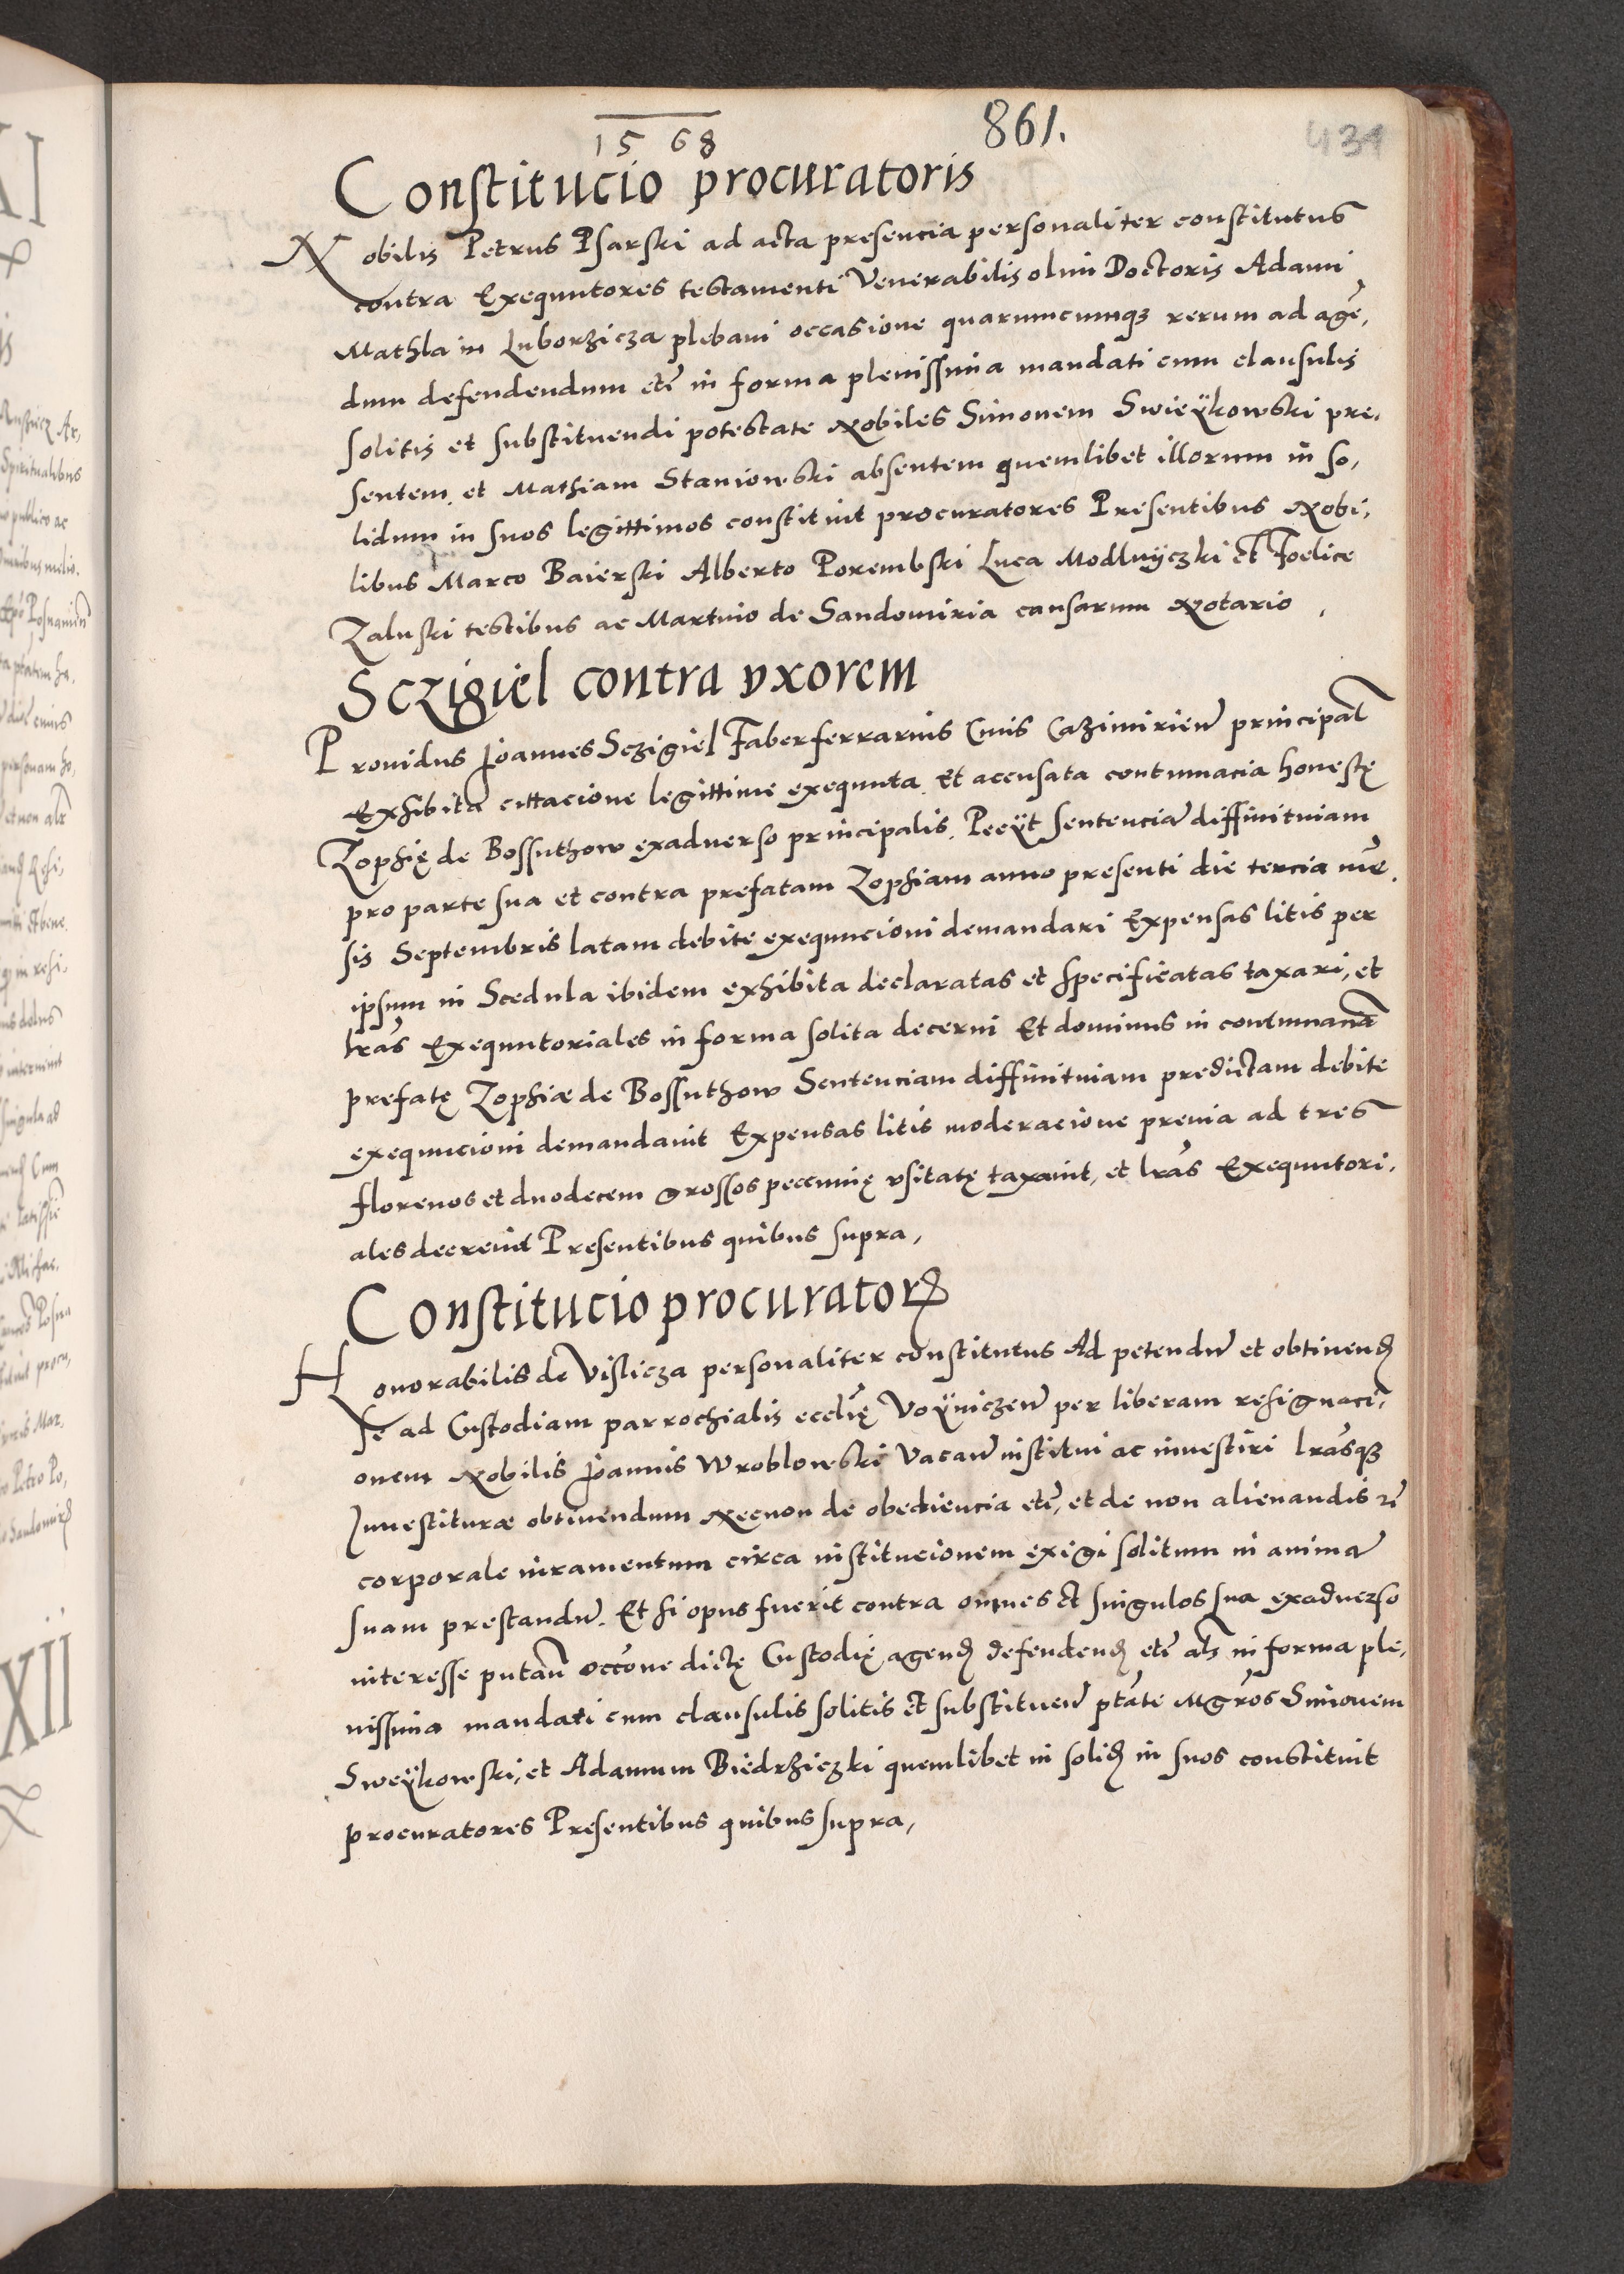 1568
861.
431
Constitucio procuratoris
Nobilis Petrus Psarski ad acta presencia personaliter constitutus
contra Exequutores testamenti Venerabilis olim Doctoris Adami
Mathla in Luborzicza plebani occasione quarumcumqz rerum ad agē,
dum defendendum etc̄ in forma plenissima mandati cum clausulis
solitis et substituendi potestate Nobiles Simonem Swieÿkowski pre,
sentem et Mathiam Staniowski absentem quemlibet illorum in so,
lidum in suos legittimos constituit procuratores Presentibus Nobi,
libus Marco Baierski Alberto Porembski Luca Modlnÿczki et Foelice
Zaluski testibus ac Martino de Sandomiria causarum Notario,
Sczigiel contra vxorem
Prouidus Joannes Sczigiel Faber ferrarius Ciuis Cazimirien̄ principal̄
Exhibita cittacione legittime exequuta. Et accusata contumacia honestę
Zophię de Bossuthow exaduerso principalis. Peeÿt sentenciā diffinituiam
pro parte sua et contra prefatam Zophiam anno presenti die tercia mē,
sis Septembris latam debite exequucioni demandari Expensas litis per
ipsum in Scedula ibidem exhibita declaratas et specificatas taxari, et
lrās Exequutoriales in forma solita decerni Et dominus in contumaciā
prefatę Zophiæ de Bossuthow Sentenciam diffinituiam predictam debite
exequucioni demandauit Expensas litis moderacione preuia ad tres
florenos et duodecem grossos peccunię vsitatę taxauit, et lrās Exequutori,
ales decreuit Presentibus quibus supra,
Constitucio procuratorꝝ
Honorabilis de Visticza personaliter constitutus Ad petendū et obtinenđ
se ad Custodiam parrochialis ecclīę Voÿniczen̄ per liberam resignaci,
onem Nobilis Joannis Wroblowski Vacan̄ institui ac inuestiri lrāsqz
Inuestituræ obtinendum Necnon de obediencia etc̄, et de non alienandis rē
corporale iuramentum circa institucionem exigi solitum in animā
suam prestandū. Et si opus fuerit contra omnes et singulos sua exaduerso
interesse putan̄ occōne dictę Custodię agenđ defendenđ etc̄ al̄s in forma ple,
nissima mandati cum clausulis solitis et substituen̄ ptāte Mgrōs Simonem
Sweÿkowski, et Adamum Biedrziczki quemlibet in soliđ in suos constituit
procuratores Presentibus quibus supra,